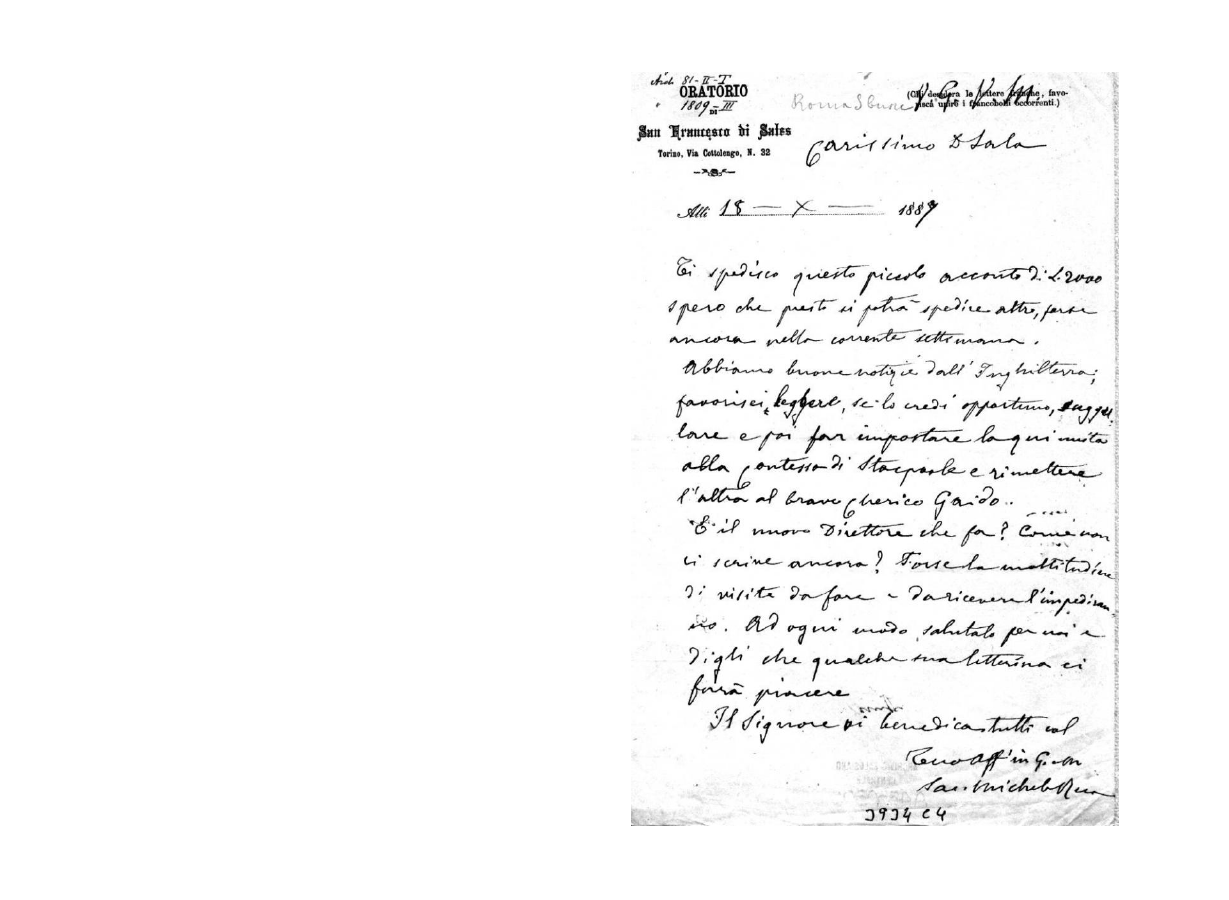 Arch. 81-II-T
ORATORIO
1809-III
DI
San Francesco di Sales
Torino, Via Cottolengo, N. 32
(Chi desidera le lettere franche, favo-
risca unire i francobolli occorrenti.)
Roma
Carissimo D Sala
Alli 18 — X — 1887
Ti spedisco questo piccolo acconto di L. 2000
spero che presto si potrà spedire altro, forse
ancora nella corrente settimana.
Abbiamo buone notizie dall'Inghilterra;
favorisci leggere, se lo credi opportuno, suggel
lare e poi far impostare la qui unita
alla Contessa di Stacpoole e rimettere
l'altra al bravo Cherico Gaido..
E il nuovo Direttore che fa? Come non
ci scrive ancora? Forse la moltitudine
di visite da fare e da ricevere l'impediran-
no. Ad ogni modo salutalo per noi e
digli che qualche sua letterina ci
farà piacere
Il Signore vi benedica tutti col
Tuo Aff in G. e M
Sac. Michele Rua
3934 C4